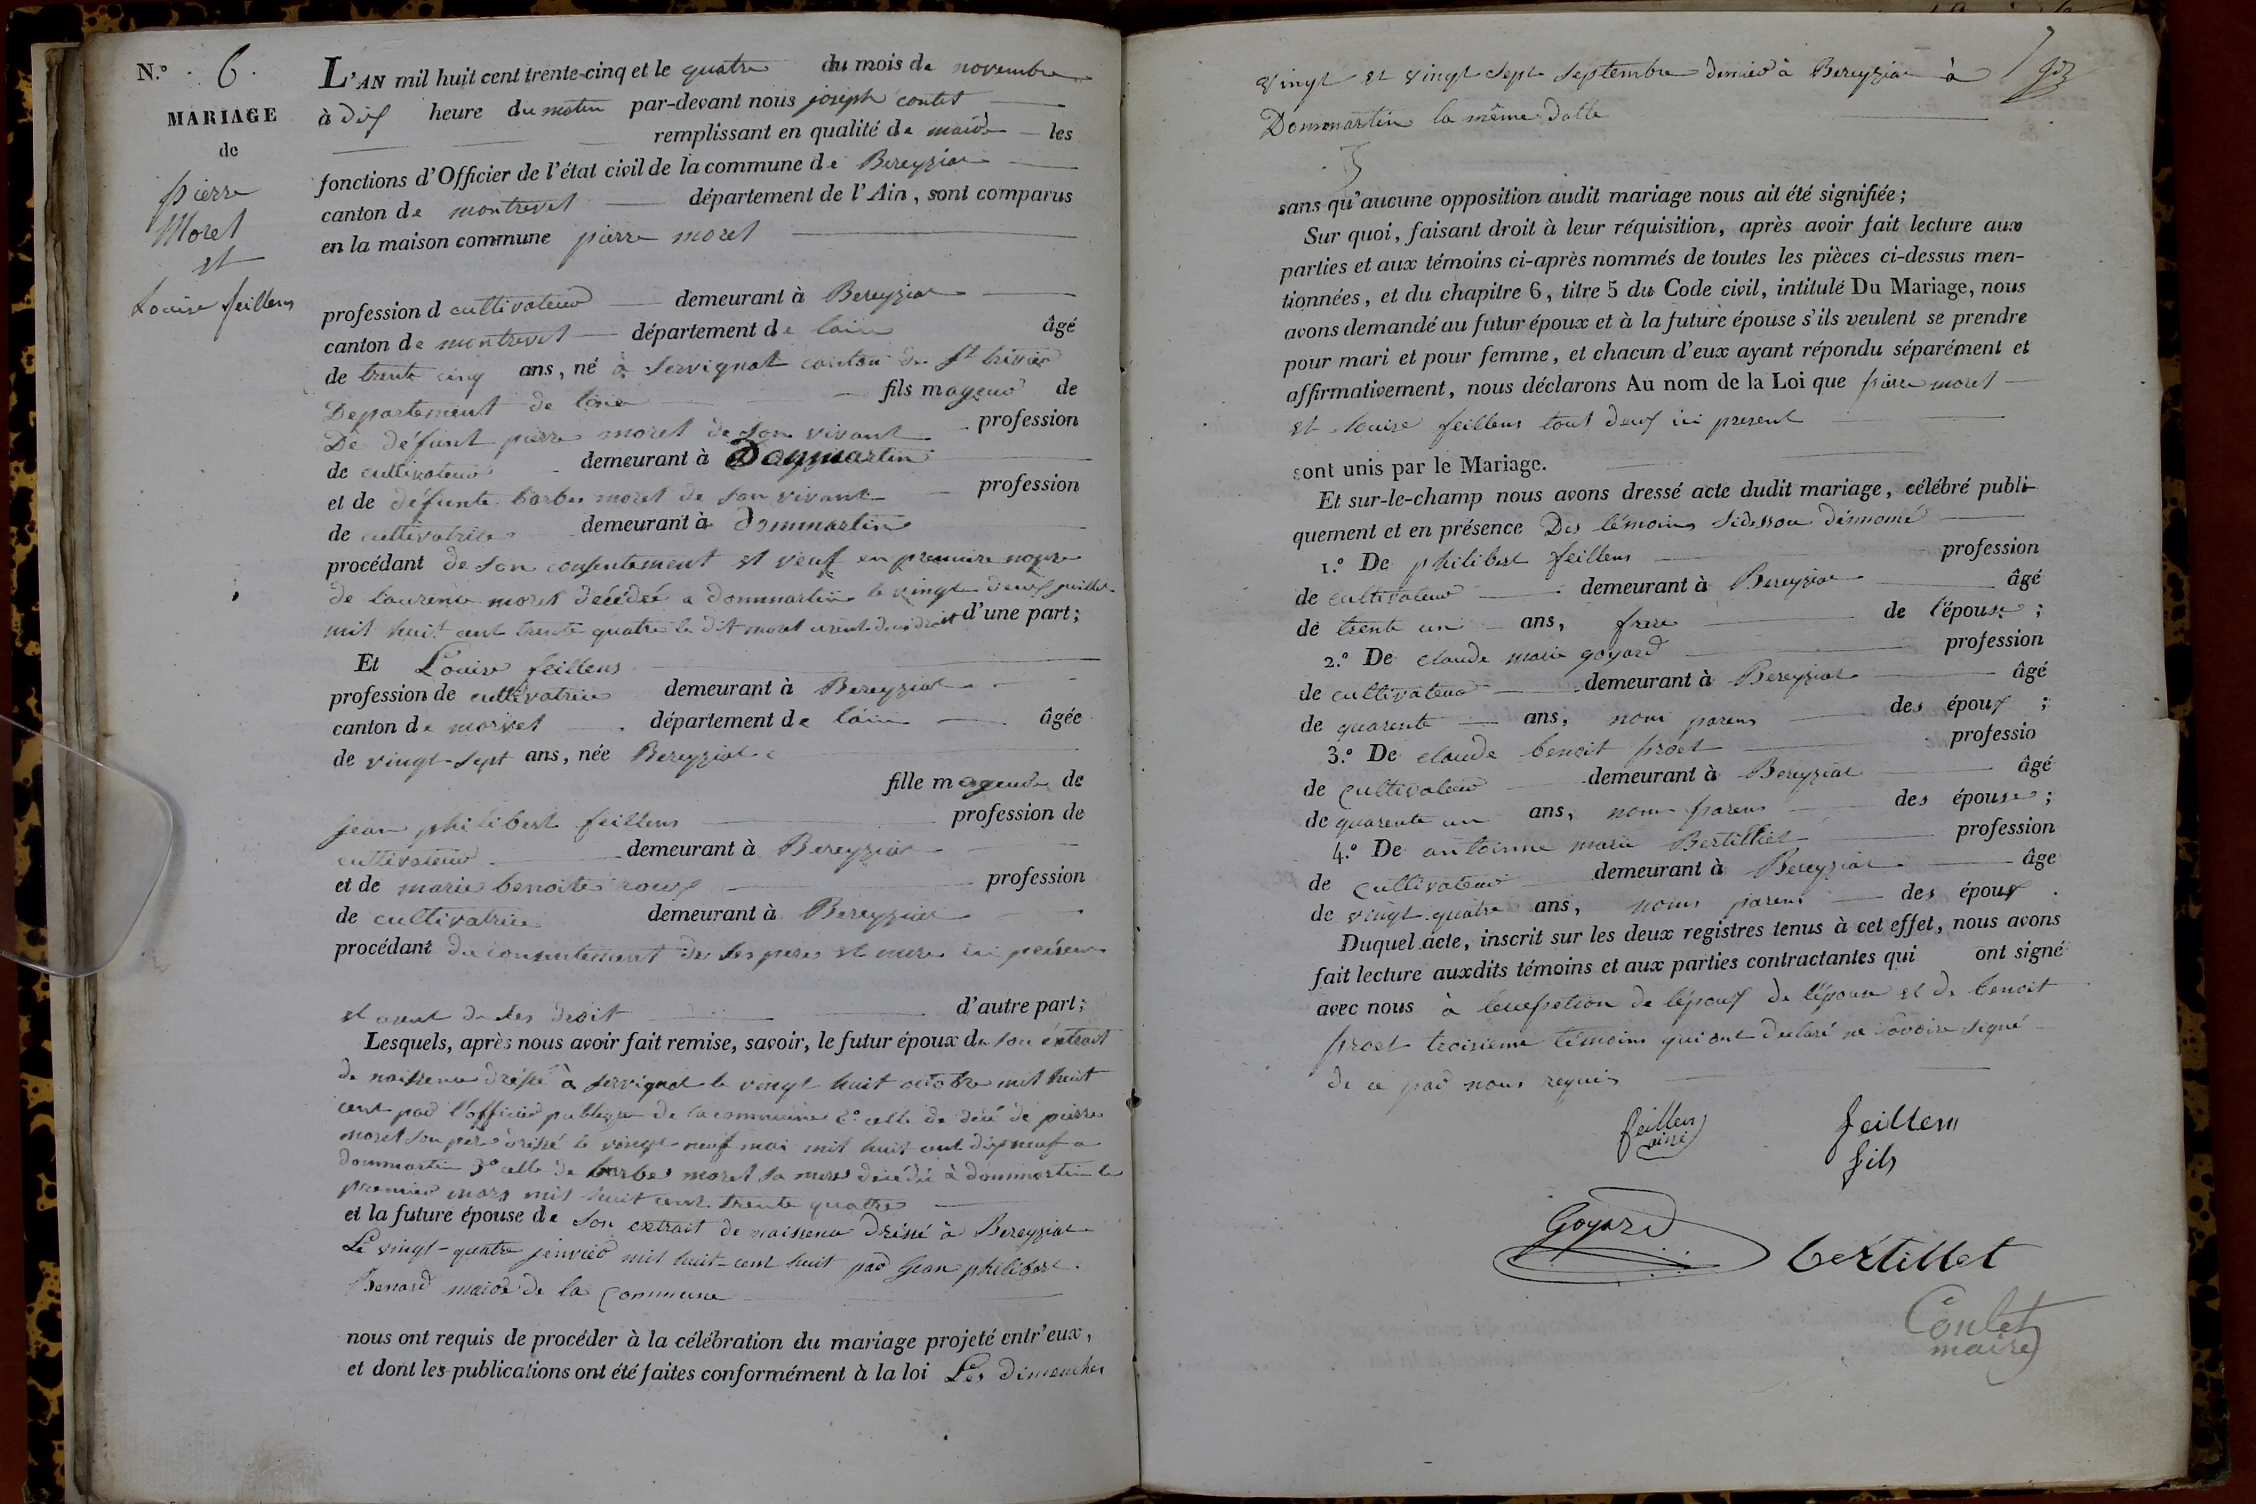 N.o 6.
MARIAGE
de
pierre
Moret
et
Louise feillens
L'AN mil huit cent trente-cinq et le quatre du mois de novembre
à dix heure du matin par-devant nous joseph contet
remplissant en qualité de maire les
fonctions d'Officier de l'état civil de la commune de Bereyziat
canton de montrevel département de l'Ain, sont comparus
en la maison commune pierre moret
profession d cultivateur demeurant à Bereyziat
canton de montrevel département de lain âgé
de trente cinq ans, né à Servignat canton de St trivier
Departement de lain fils mageur de
De défunt pierre moret de son vivant profession
de cultivateur demeurant à Dommartin
et de défunte barbe moret de son vivant profession
de cultivatrice demeurant à dommartin
procédant de son consentement et veuf en premiere
de laurence moret décédée a dommartin le vingt deux juillet
mil huit cent trente quatre le dit moret d'une part;
Et Louise feillens
profession de cultivatrice demeurant à Bereyziat
canton de département de lain âgée
de vingt-sept ans, née Bereyziat
fille mageure de
jean philibert feillens profession de
cultivateur demeurant à Bereyziat
et de marie benoite roux profession
de cultivatrice demeurant à Bereyziat
procédant du consentement de ses pere et mere ici
et usent de ses droit d'autre part;
Lesquels, après nous avoir fait remise, savoir, le futur époux de son extrait
de naissence dréssé à servignat le vingt huit octobre mil huit
cent par l'officier de la commune 2o celle de décé de pierre
moret son pere dréssé le vingt neuf mai mil huit cent dix neuf a
dommartin 3o celle de barbe moret sa mere décédée à dommartin le
premier mars mil huit cent trente quatre
et la future épouse de son extrait de naissence dréssé à Bereyziat
Le vingt-quatre jenvier mil huit-cent huit par jean philibert
Benard maire de la Commune
nous ont requis de procéder à la célébration du mariage projeté entr'eux,
et dont les publications ont été faites conformément à la loi Les dimanches
vingt et vingt sept septembre dernier à Bereyziat à
Dommartin la même datte
sans qu'aucune opposition audit mariage nous ait été signifiée;
Sur quoi, faisant droit à leur réquisition, après avoir fait lecture aux
parties et aux témoins ci-après nommés de toutes les pièces ci-dessus men-
tionnées, et du chapitre 6, titre 5 du Code civil, intitulé Du Mariage, nous
avons demandé au futur époux et à la future épouse s'ils veulent se prendre
pour mari et pour femme, et chacun d'eux ayant répondu séparément et
affirmativement, nous déclarons Au nom de la Loi que pierre moret
et louise feillens tout deux ici present
sont unis par le Mariage.
Et sur-le-champ nous avons dressé acte dudit mariage, célébré publi-
quement et en présence Des témoins sidessou dénomé
1.o De philibert feillens profession
de cultivateur demeurant à Bereyziat âgé
de trente un ans, frere de l'épouse;
2.o De claude marie goyard profession
de cultivateur demeurant à Bereyziat âgé
de quarente ans, nom parens des époux;
3.o De claude benoit proet professio
de cultivateur demeurant à Bereyziat âgé
de quarente un ans, nom parens des épouse;
4.o De antoinne marie Bertillet profession
de cultivateur demeurant à Bereyziat âge
de vingt quatre ans, nom parens des époux.
Duquel acte, inscrit sur les deux registres tenus à cet effet, nous avons
fait lecture auxdits témoins et aux parties contractantes qui ont signé
avec nous à de lépoux de lépouse et de benoit
proet troisieme témoins qui ont declaré ne savoir signé
de ce par nous requis
feillens
ainé
feillens
fils
Goyard
bertillet
Contet
maire